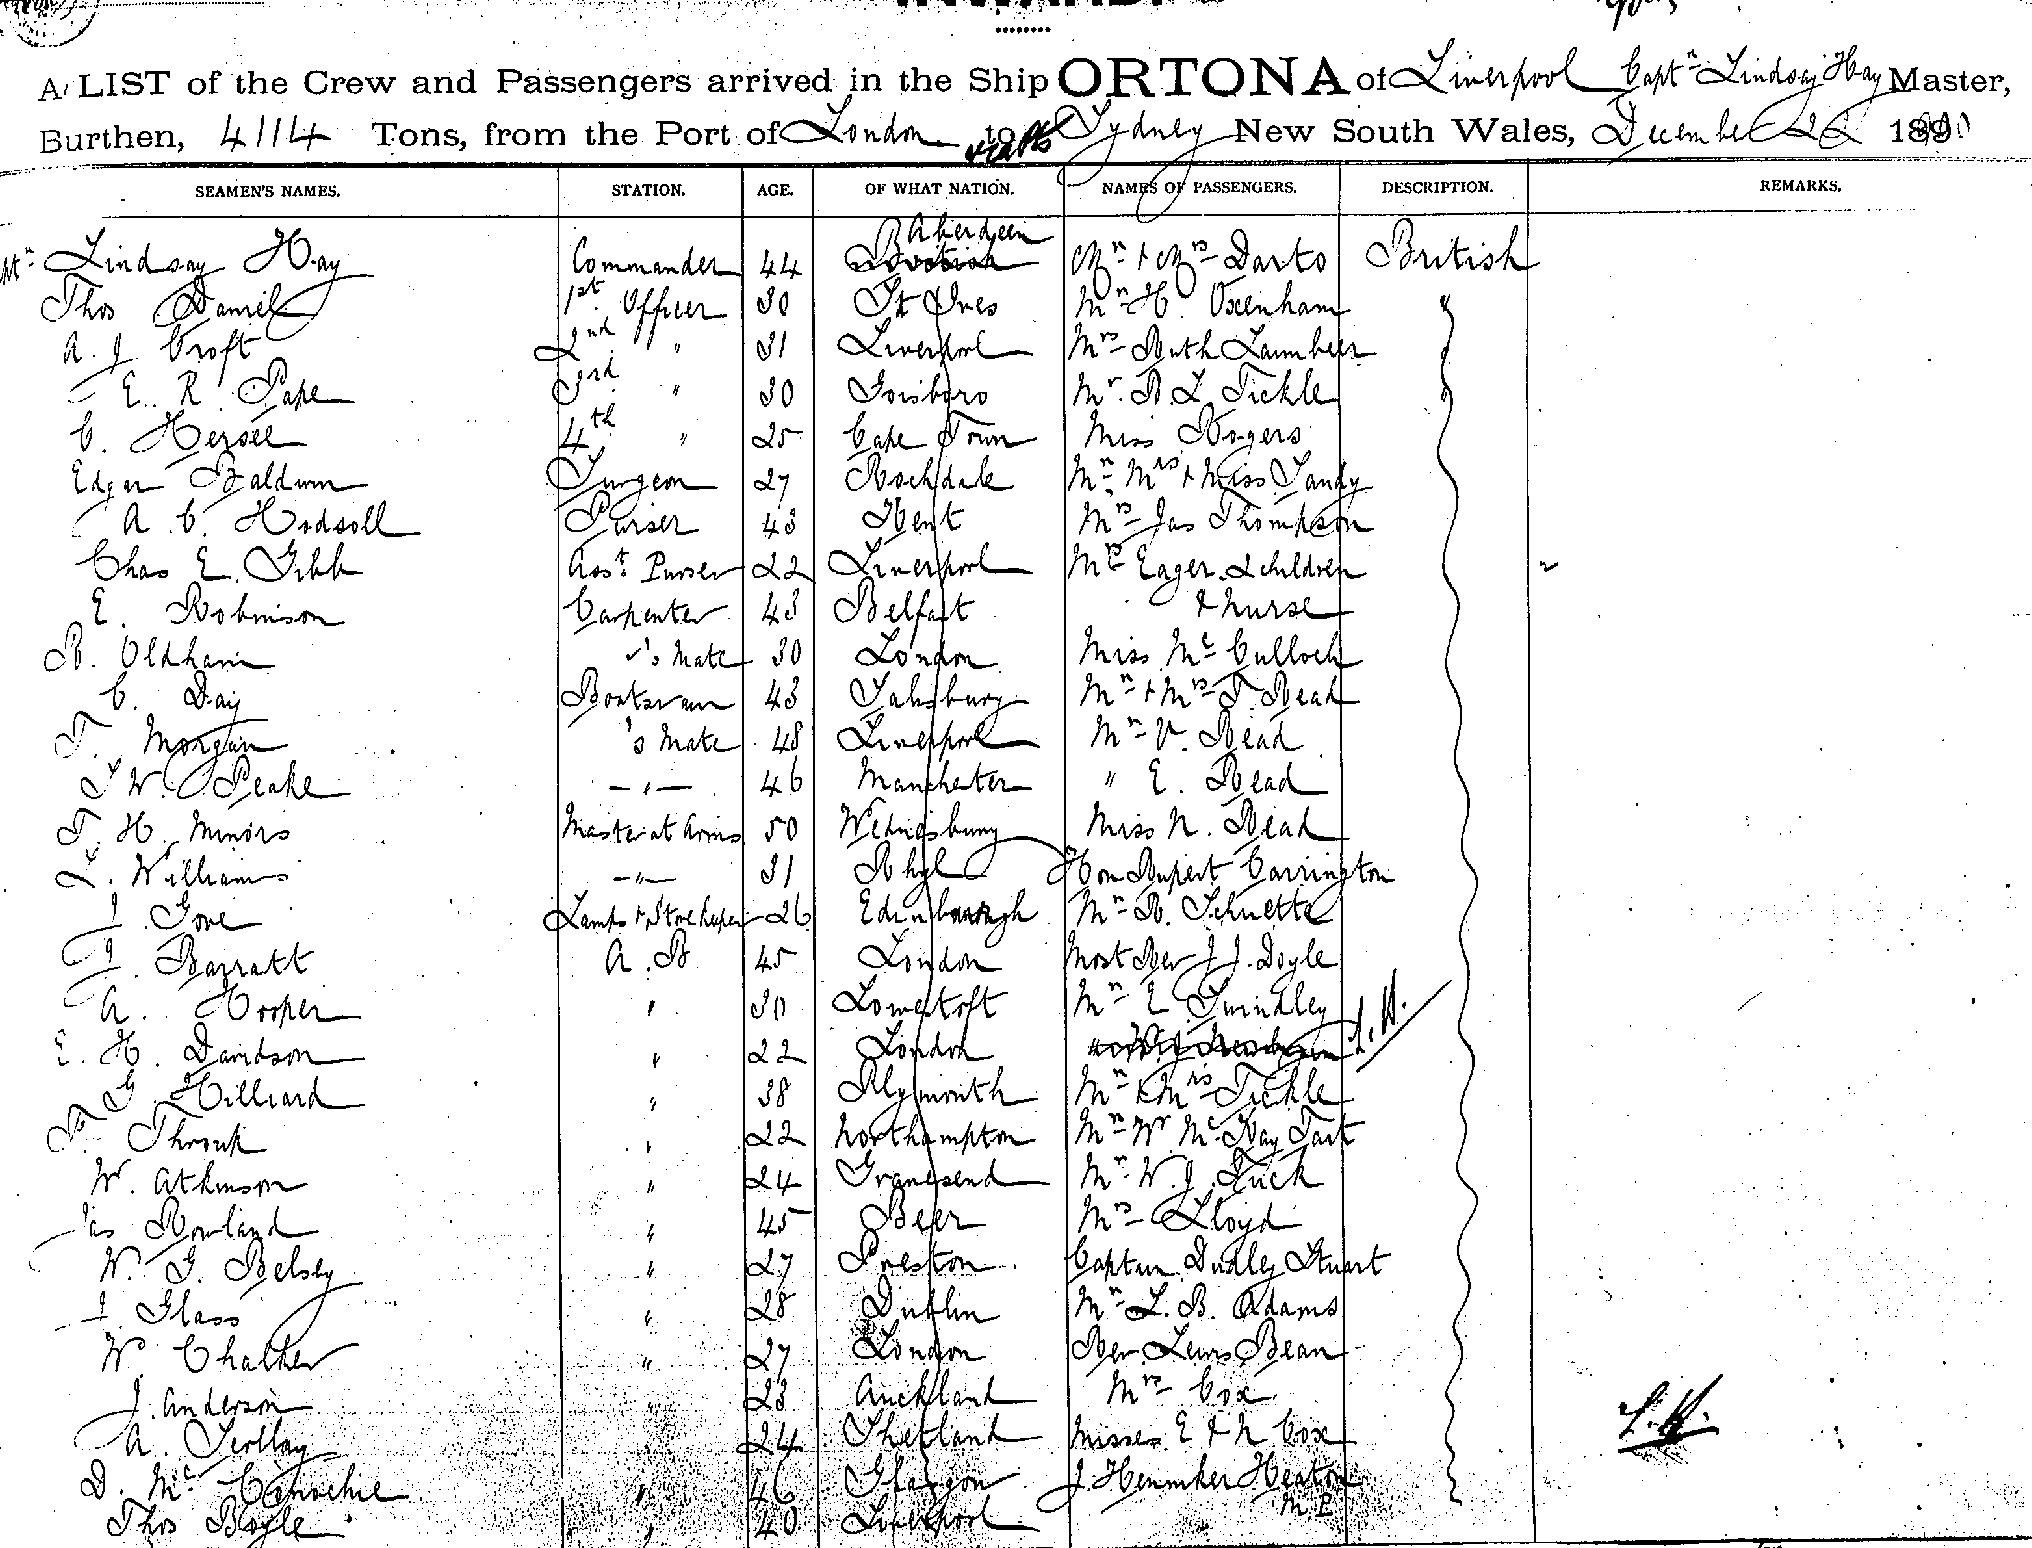 A LIST of the Crew and Passengers arrived in the Ship ORTONA of Liverpool Captn Lindsay Hay Master,
Burthen, 4114 Tons, from the Port of London to Sydney New South Wales, December 22 189
SEAMEN'S NAMES. STATION. AGE. OF WHAT NATION. NAMES OF PASSENGERS. DESCRIPTION. REMARKS.
Lindsay Hay Commander 44 Aberdeen Mr + Mrs Darto British
Thos Daniel 1st Officer 30 St Ives Mr H. Oxenham "
A. J Croft 2nd " 31 Liverpool Mrs Ruth
E. R. Pape 3rd " 30 Goisboro Mr. R. L Tickle
C. Hersee 4th " 25 Cape Town Miss Rogers
Edgar Baldwin Surgeon 27 Rochdale Mr Mrs + Miss Sandy
A. C. Hodsoll Purser 43 Kent Mrs Jas Thompson
Chas E. Gibb Asst. Purser 22 Liverpool Mrs Eager & children
E. Robinson Carpenter 43 Belfast + nurse
R. Oldham 's Mate 30 London Miss Mc Culloch
C. Day Boatswain 43 Salisbury Mr + Mrs T. Read
T. Morgan 's Mate 48 Liverpool Mr V. Read
J W. Peake — " — 46 Manchester " E. Read
T. H. Minors Master at Arms 50 Wednesbury Miss N. Read
Williams — " — 31 Rhyl Hon Rupert Carrington
J. Gove Lamps & Storekeeper 26 Edinburgh Mr R. Schuette
J. Barratt A. B 45 London Most Rev J J. Doyle
A. Hooper " 30 Lowestoft Mr E Swindley
E. H. Davidson " 22 London L. H.
G Hilliard " 38 Plymouth Mr & Mrs Tickle
R. Throup " 22 Northampton Mr W Mc Kay Tait
W. Atkinson " 24 Gravesend Mr. W. J. Tuck
Jas Rowland " 45 Beer Mrs Lloyd
W. G. Belsey " 27 Preston Captain Dudley Stuart
J Glass " 28 Dublin Mr L. B. Adams
W. Chalker " 27 London Rev Lewis Bean
J. Anderson " 23 Auckland Mrs Cox
A. Scollay " 24 Shetland Misses E & N Cox L. H.
D. Mc Conochie " 46 Glasgow J. Henniker Heaton
Thos Boyle " 40 Liverpool M P